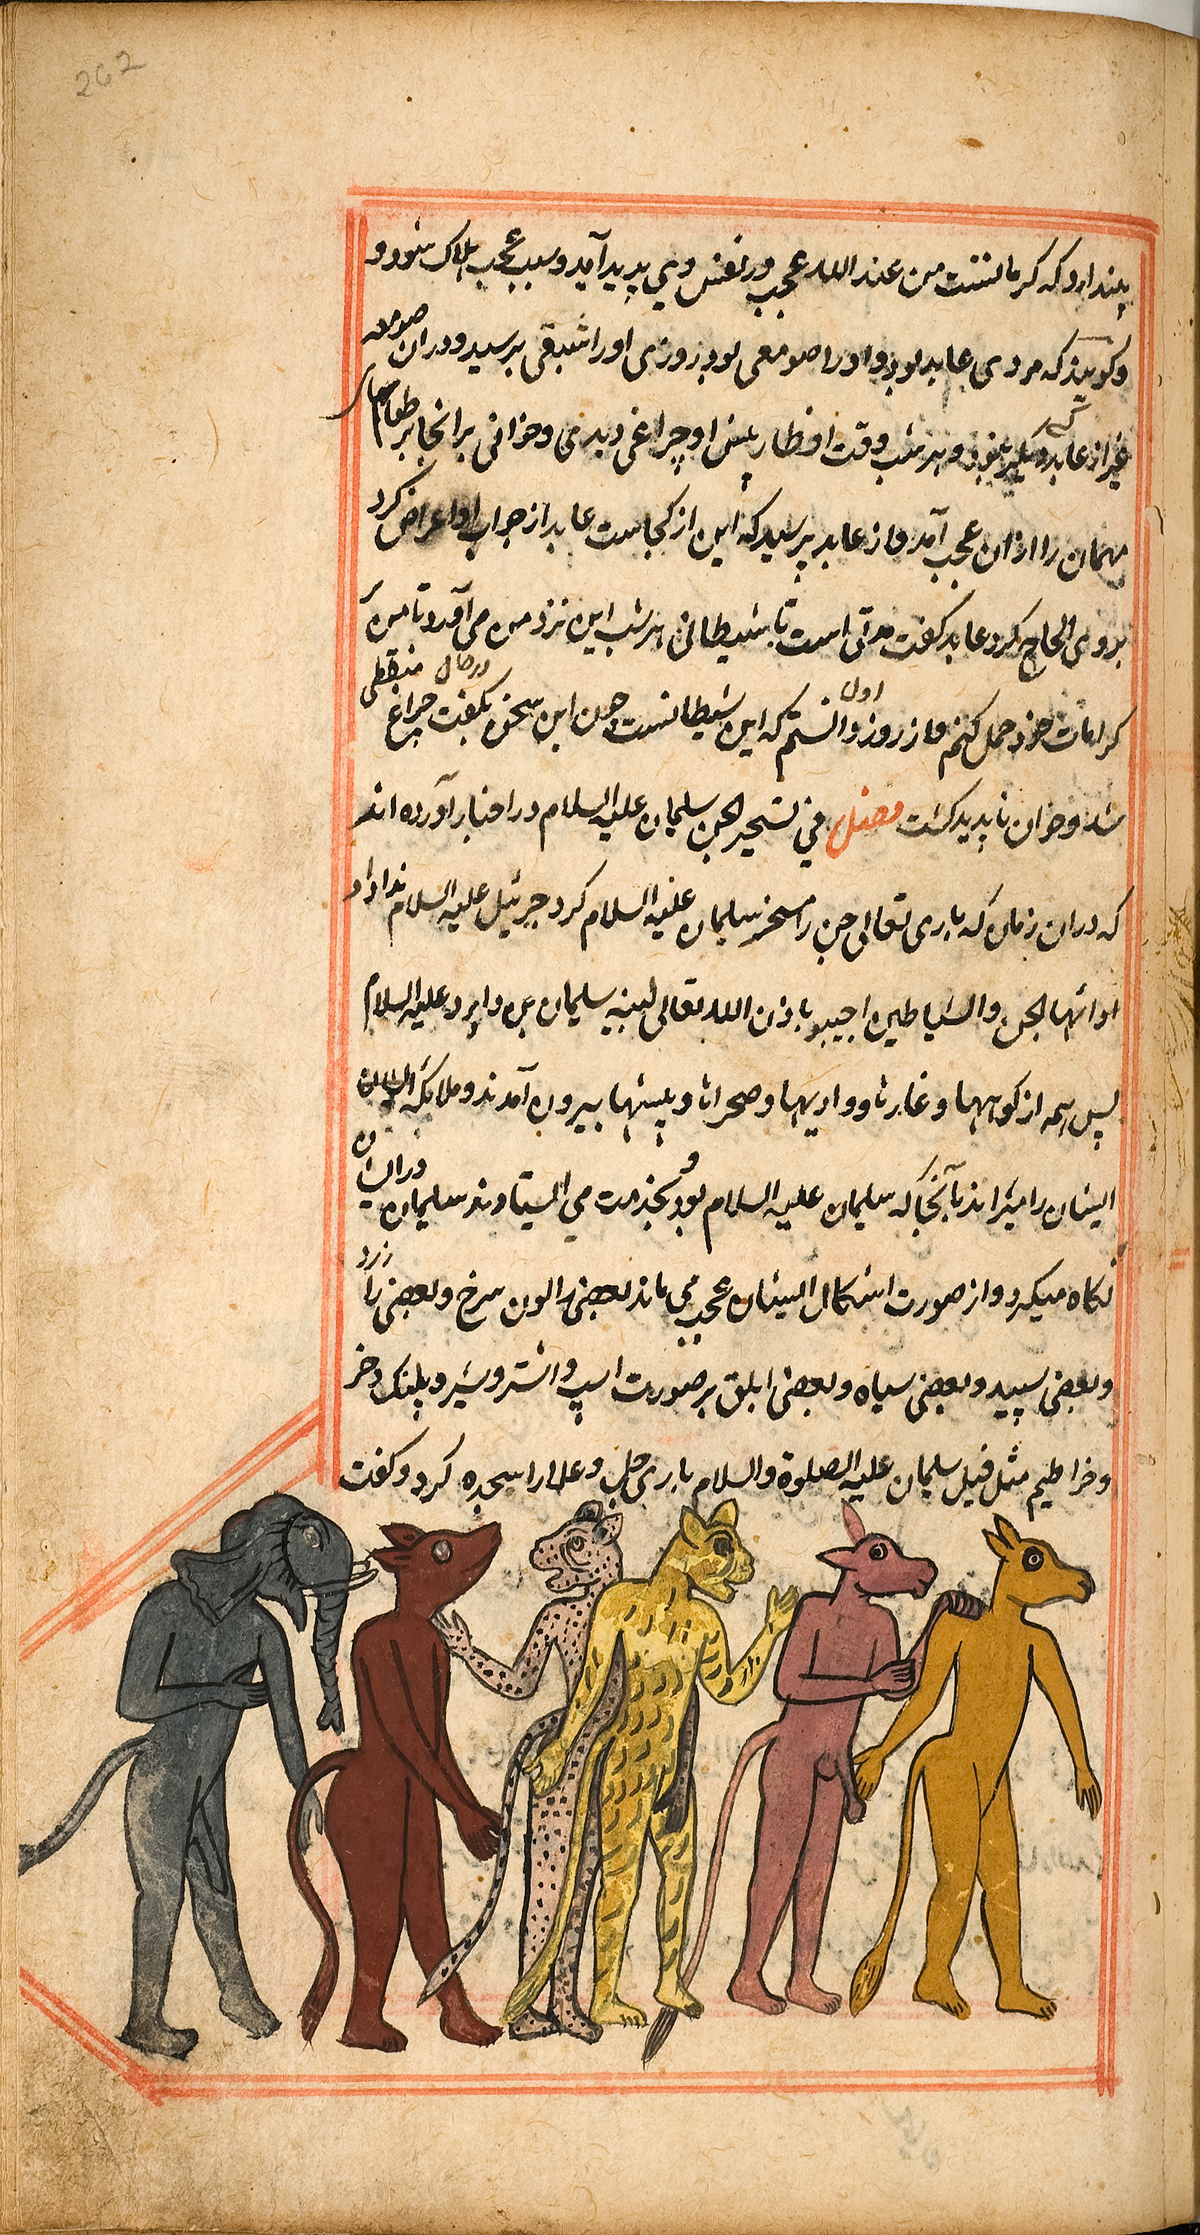 262
پندارد که کرمانتست من عند الله عجب در نفس وی پدید آید و بسبب عجب هلاک شود و
و کویند که مردی عابد بود و او را صومعی بود روزی او را شبقی برسید و دران صومعه
غیر از عابد دیکر نبود و هر شب وقت افطار پیش او چراغی دیدی و خوانی برانجا بر طعام
مهمان را ازان عجب آمد و از عابد پرسید که این از کجاست عابد از جواب او اعراض کرد
بر وی الحاح کرد عابد کفت مدتی است تا شیطانی هر شب این نزد من می آورد تا من
کرامات خود حمل کنم و از روز اول دانستم که این شیطانست چون این سخن بکفت درحال چراغ منطفی
شد و خوان ناپدید کشت فصل فی تسخیر الجن سلیمان علیه السلام در اخبار آورده اند
که دران زمان که باری تعالی جن را مسخر سلیمان علیه السلام کرد جبرئیل علیه السلام ندا داد
او ایتها الجن والشیاطین اجیبو باذن الله تعالی لنبیه سلیمان بن داود علیه السلام
پس همه از کوهها و غارها و وادیها و صحراها و بیشها بیرون آمدند و ملایکه
ایشان را میراندند تا آنجا که سلیمان علیه السلام بود و بخدمت می ایستاوند سلیمان دران
نکاه میکرد و از صورت اشکال ایشان عجب می ماند بعضی را لون سرخ و بعضی را زرد
و بعضی سپید و بعضی سیاه و بعضی ابلق بر صورت اسپ و اشتر و شیر و پلنک و خر
و خراطیم مثل فیل سلیمان علیه الصلوة والسلام باری جل و علا را سجده کرد و کفت